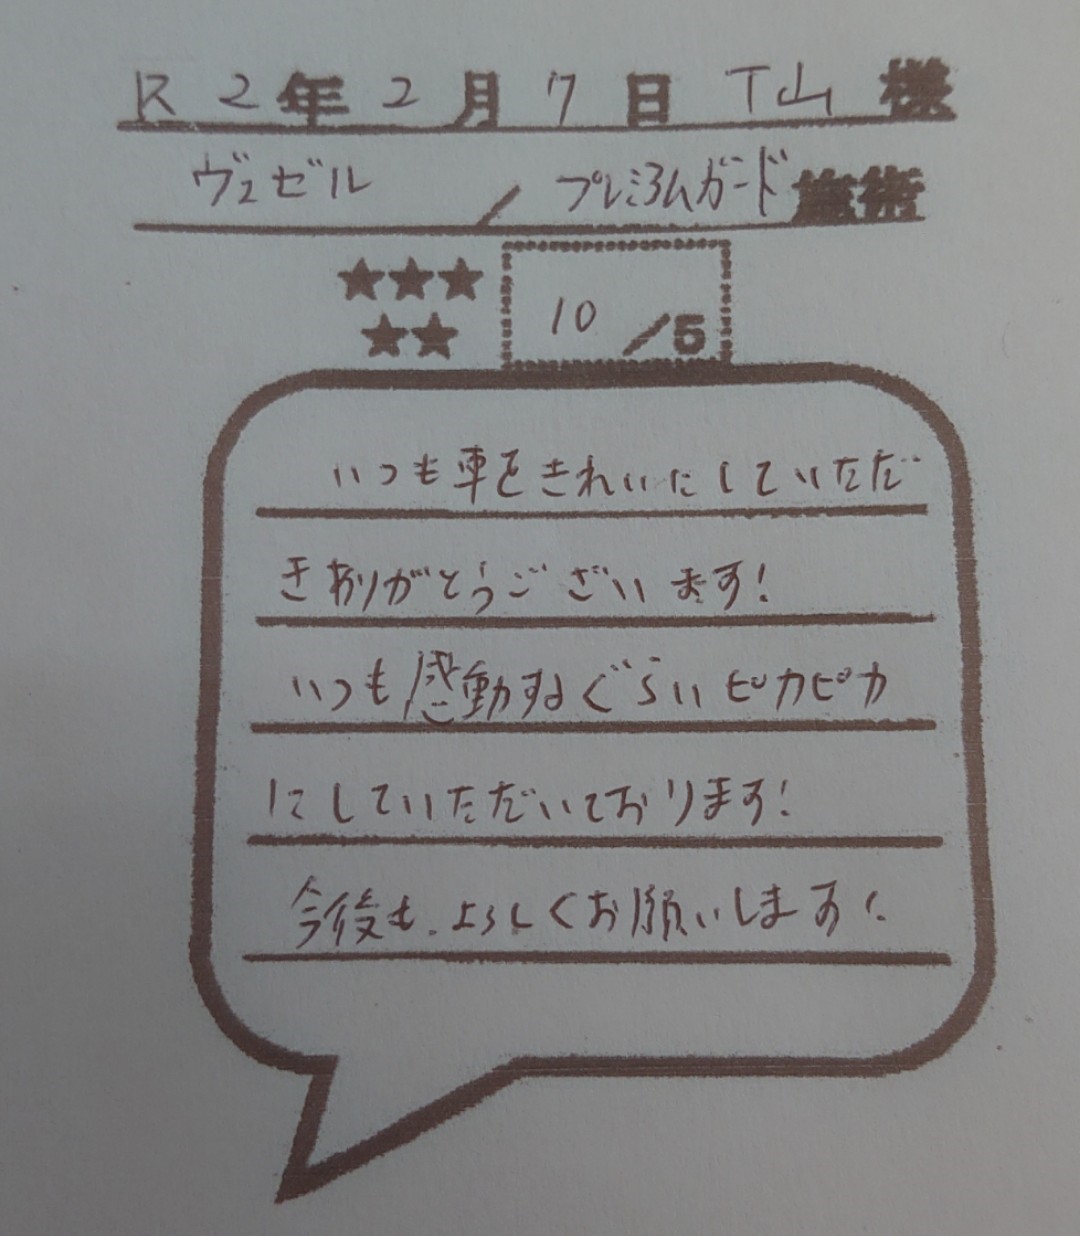 R2年2月7日 T山様
ヴェゼル / プレミアムガード施術
★★★
★★
10/5
いつも車をきれいにしていただ
きありがとうございます!
いつも感動するぐらいピカピカ
にしていただいております!
今後も、よろしくお願いします!